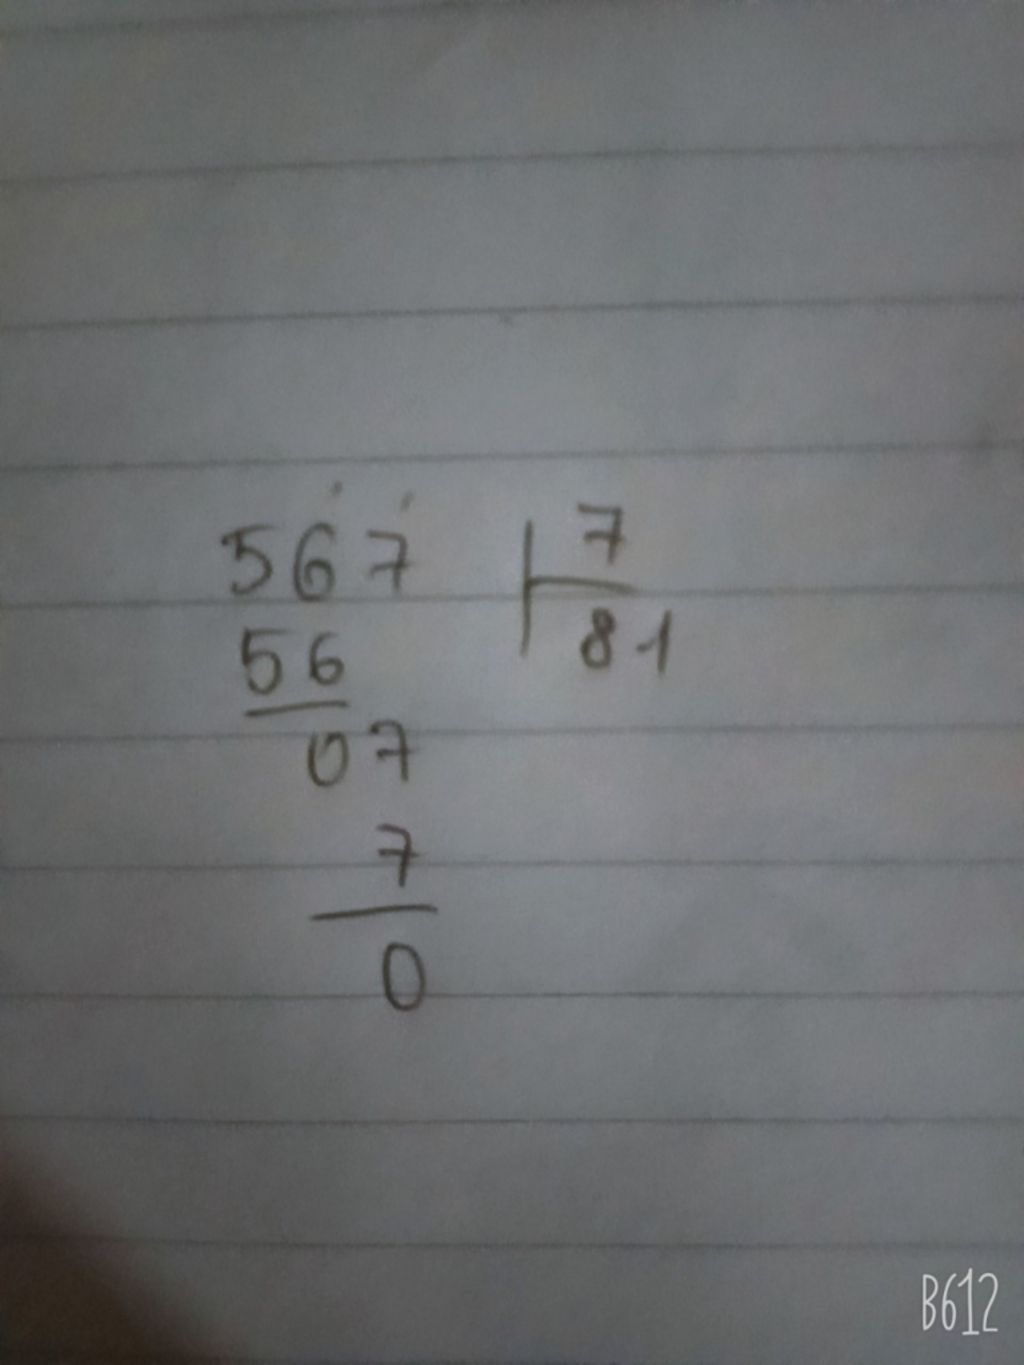 567 7
56 81
07
7
0
B612